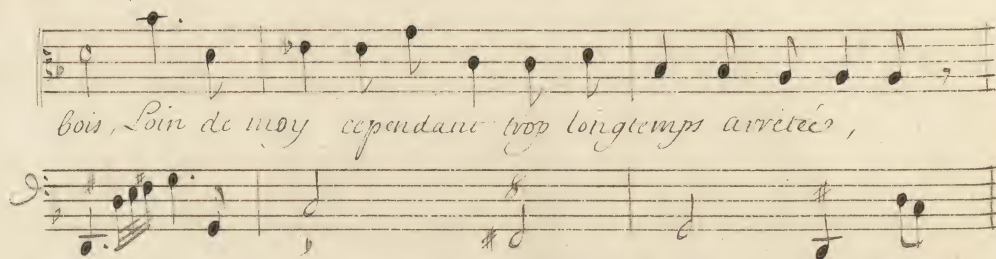 bois, Loin de moy cependant trop longtemps arretée,